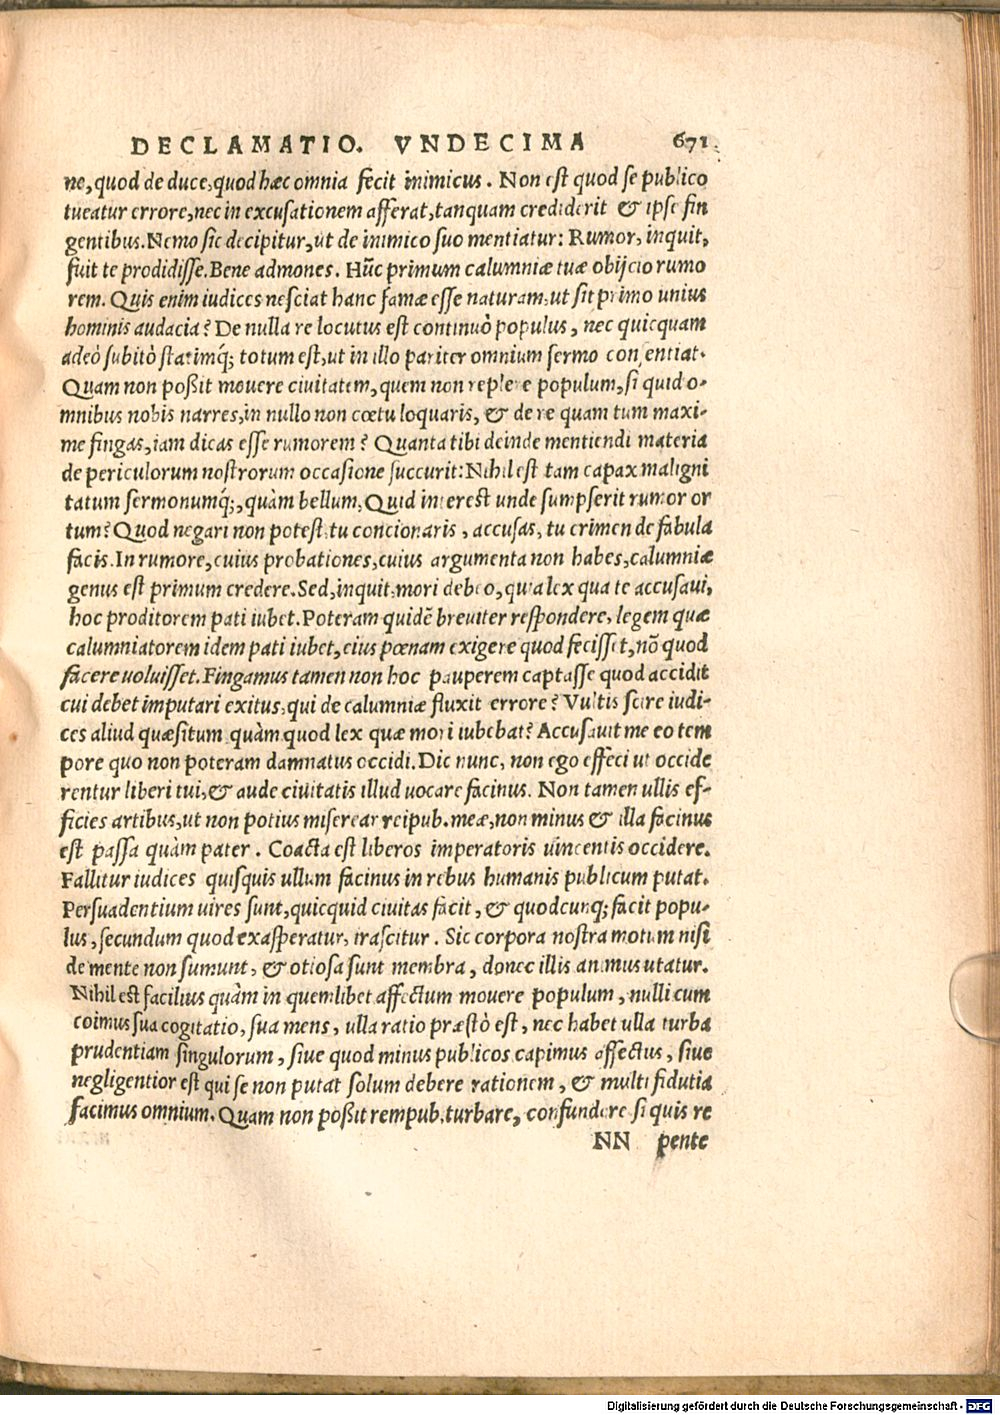 DECLAMATIO. VNDECIMA 671
ne, quod de duce, quod hæc omnia fecit inimicus. Non est quod se publico
tueatur errore, nec in excusationem afferat, tanquam crediderit & ipse fin
gentibus. Nemo sic decipitur, ut de inimico suo mentiatur: Rumor, inquit,
fuit te prodidisse. Bene admones. Hũc primum calumniæ tuæ obijcio rumo
rem. Quis enim iudices nesciat hanc famæ esse naturam, ut sit primo unius
hominis audacia? De nulla re locutus est continuò populus, nec quicquam
adeò subitò statimq́; totum est, ut in illo pariter omnium sermo consentiat.
Quam non poßit mouere ciuitatem, quem non replere populum, si quid o-
mnibus nobis narres, in nullo non cœtu loquaris, & de re quam tum maxi-
me fingas, iam dicas esse rumorem? Quanta tibi deinde mentiendi materia
de periculorum nostrorum occasione succurit: Nihil est tam capax maligni
tatum sermonumq́;, quàm bellum. Quid interest unde sumpserit rumor or
tum? Quod negari non potest, tu concionaris, accusas, tu crimen de fabula
facis. In rumore, cuius probationes, cuius argumenta non habes, calumniæ
genus est primum credere. Sed, inquit, mori debeo, quia lex qua te accusaui,
hoc proditorem pati iubet. Poteram quidẽ breuiter respondere, legem quæ
calumniatorem idem pati iubet, eius pœnam exigere quod fecisset, nõ quod
facere uoluisset. Fingamus tamen non hoc pauperem captasse quod accidit
cui debet imputari exitus, qui de calumniæ fluxit errore? Vultis scire iudi-
ces aliud quæsitum quàm quod lex quæ mori iubebat? Accusauit me eo tem
pore quo non poteram damnatus occidi. Dic nunc, non ego effeci ut occide
rentur liberi tui, & aude ciuitatis illud uocare facinus. Non tamen ullis ef-
ficies artibus, ut non potius miserear reipub. meæ, non minus & illa facinus
est passa quàm pater. Coacta est liberos imperatoris uincentis occidere.
Fallitur iudices quisquis ullum facinus in rebus humanis publicum putat.
Persuadentium uires sunt, quicquid ciuitas facit, & quodcunq; facit popu-
lus, secundum quod exasperatur, irascitur. Sic corpora nostra motum nisi
de mente non sumunt, & otiosa sunt membra, donec illis animus utatur.
Nihil est facilius quàm in quemlibet affectum mouere populum, nulli cum
coimus sua cogitatio, sua mens, ulla ratio præstò est, nec habet ulla turba
prudentiam singulorum, siue quod minus publicos capimus affectus, siue
negligentior est qui se non putat solum debere rationem, & multi fidutia
facimus omnium. Quam non poßit rempub. turbare, confundere si quis re
NN pente
Digitalisierung gefördert durch die Deutsche Forschungsgemeinschaft - DFG